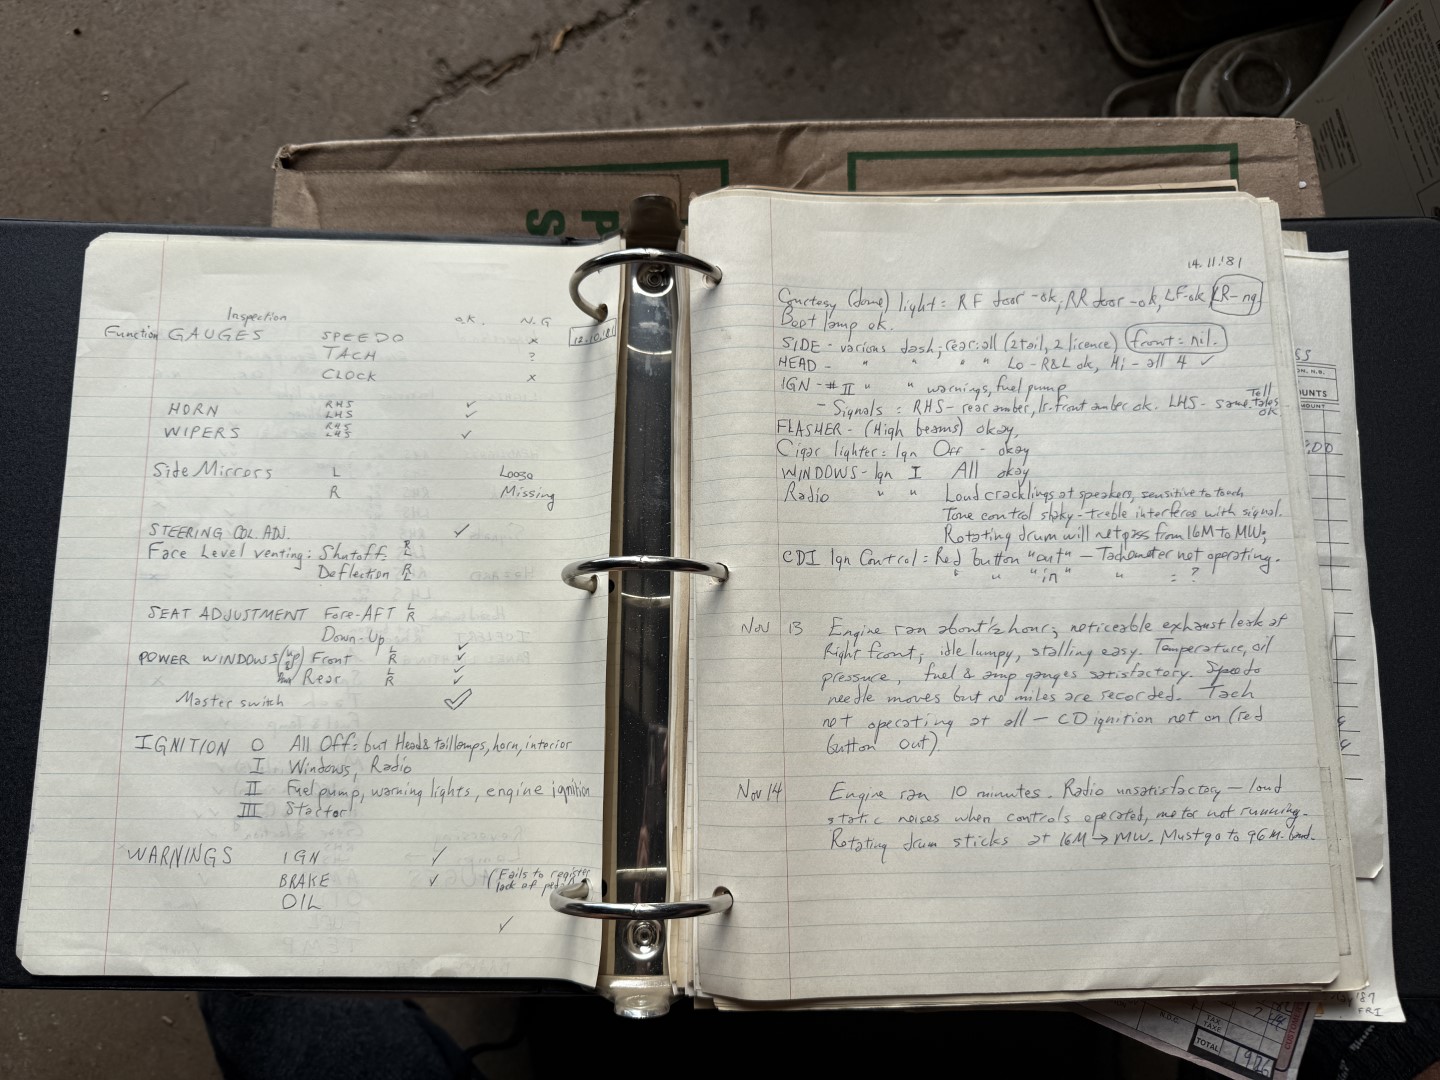 Inspection ok. N.G
Function GAUGES SPEEDO x 12.10.'81
TACH ?
CLOCK x
HORN RHS ✓
LHS ✓
WIPERS RHS
LHS ✓
Side Mirrors L Loose
R Missing
STEERING COL. ADJ. ✓
Face Level venting: Shutoff R
L
Deflection R
L
SEAT ADJUSTMENT Fore-AFT L
R
Down-Up
POWER WINDOWS (up & Front L ✓
R ✓
Rear L ✓
R ✓
Master switch ✓
IGNITION O All Off: but Head & taillamps, horn, interior
I Windows, Radio
II Fuel pump, warning lights, engine ignition
III Starter
WARNINGS IGN ✓
BRAKE ✓ (Fails to register
lack of
OIL
✓
14.11.'81
Courtesy (dome) light = RF door -ok, RR door -ok, LF-ok LR-ng
Boot lamp ok.
SIDE - various dash, rear: all (2 tail, 2 licence) front = nil.
HEAD - " " " " Lo - R&L ok, Hi - all 4 ✓
IGN - # II " " warnings, fuel pump
- Signals = RHS - rear amber, front amber ok. LHS - same. Tell
tales
ok.
FLASHER - (High beams) okay,
Cigar lighter = Ign Off - okay
WINDOWS - Ign I All okay
Radio " " Loud cracklings at speakers, sensitive to touch
Tone control shaky - treble interferes with signal.
Rotating drum will not pass from 16M to MW;
CDI Ign Control = Red button "out" - Tachometer not operating.
" " "in" " = ?
Nov 13 Engine ran about ½ hour; noticeable exhaust leak at
Right front; idle lumpy, stalling easy. Temperature, oil
pressure, fuel & amp gauges satisfactory. Speedo
needle moves but no miles are recorded. Tach
not operating at all - CD ignition not on (red
button out).
Nov 14 Engine ran 10 minutes. Radio unsatisfactory - loud
static noises when controls operated, motor not running.
Rotating drum sticks at 16M → MW. Must go to
TAX
TAXE
TOTAL
'87
FRI